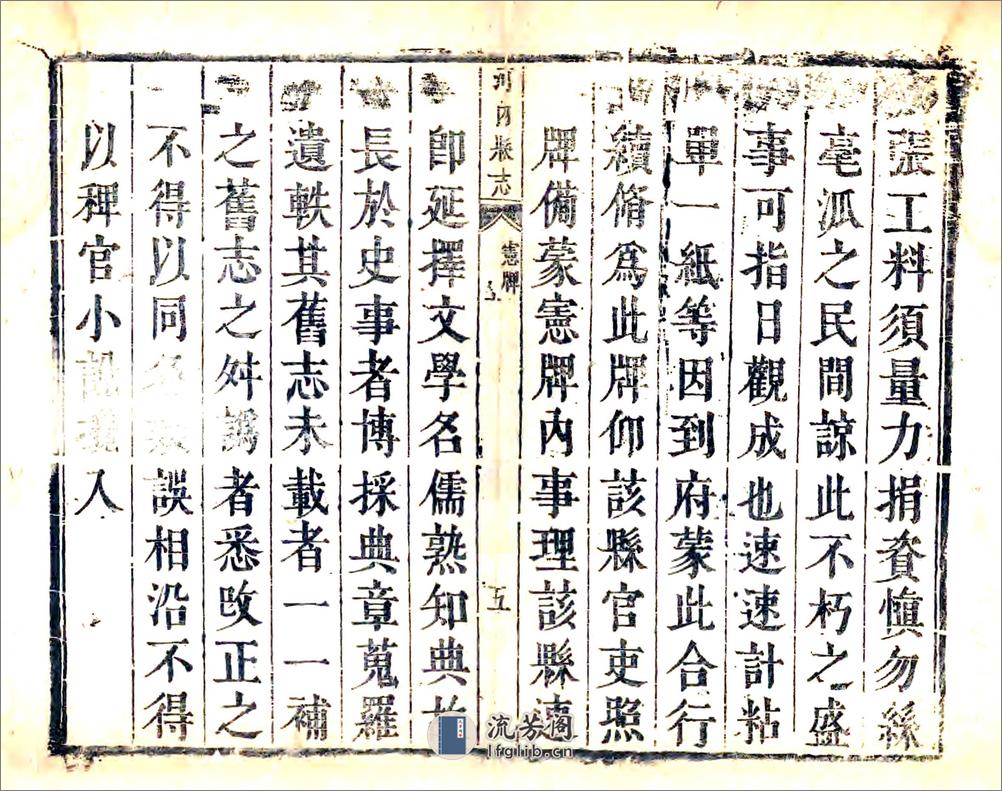 張工料須量力捐資慎勿絲
毫派之民間諒此不朽之盛
事可指日觀成也速速計粘
單一紙等因到府蒙此合行
續脩爲此牌仰該縣官吏照
牌備蒙憲牌內事理該縣速
河內縣志
憲牌
五
卽延擇文學名儒熟知典故
長於史事者博採典章蒐羅
遺軼其舊志未載者一一補
之舊志之舛譌者悉改正之
不得以同 誤相沿不得
以稗官小 入
流芳阁
lfglib.cn